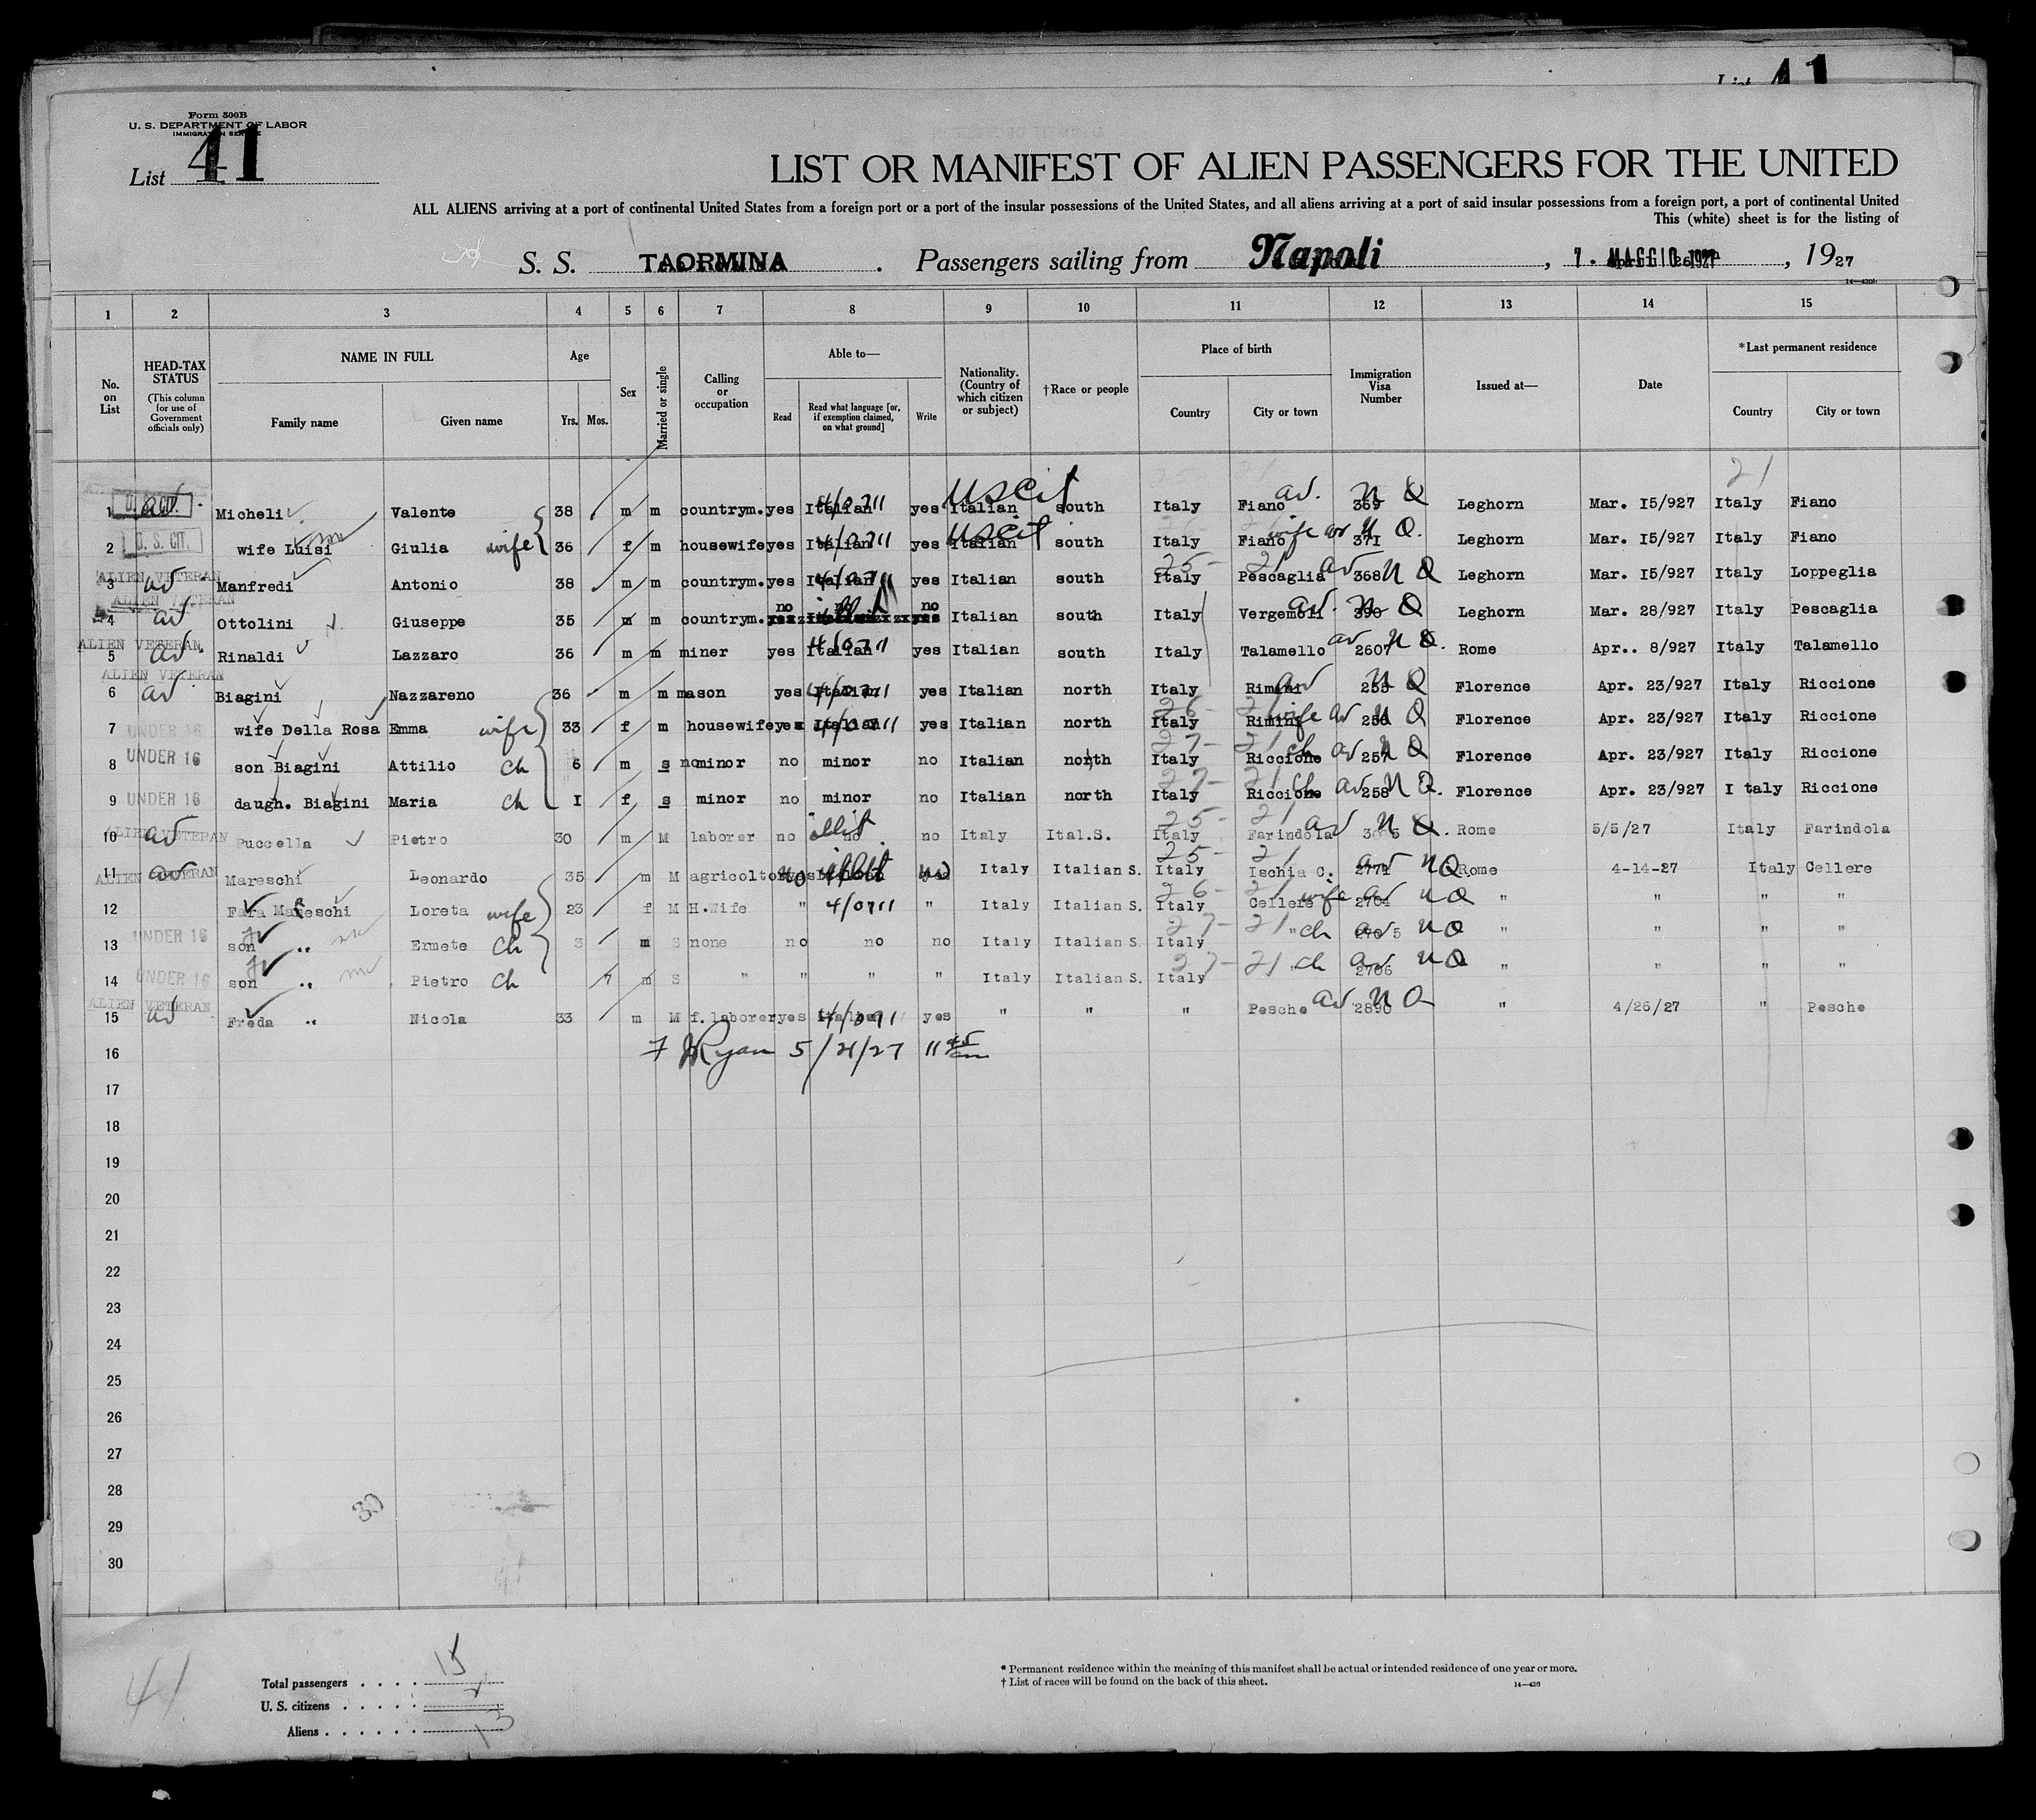 List 41
Form 500B
U. S. DEPARTMENT OF LABOR
IMMIGRATION SERVICE
List 41
LIST OR MANIFEST OF ALIEN PASSENGERS FOR THE UNITED
ALL ALIENS arriving at a port of continental United States from a foreign port or a port of the insular possessions of the United States, and all aliens arriving at a port of said insular possessions from a foreign port, a port of continental United
This (white) sheet is for the listing of
S. S. TAORMINA . Passengers sailing from Napoli , 7. MAGGIO 1927 , 1927
14—430b
1 2 3 4 5 6 7 8 9 10 11 12 13 14 15
No. on List
HEAD-TAX STATUS
(This column for use of Government officials only)
NAME IN FULL
Family name Given name
Age
Yrs. Mos.
Sex
Married or single
Calling or occupation
Able to—
Read Read what language [or, if exemption claimed, on what ground] Write
Nationality. (Country of which citizen or subject)
†Race or people
Place of birth
Country City or town
Immigration Visa Number
Issued at—
Date
*Last permanent residence
Country City or town
21
1 U. S. CIT. av Micheli Valente 38 m m countrym. yes Italian 4/0711 yes Italian US Cit south Italy Fiano av. 369 NQ Leghorn Mar. I5/927 Italy Fiano
2 U. S. CIT. wife Luisi Giulia wife 36 f m housewife yes Italian 4/0711 yes Italian US Cit south Italy Fiano wife av 37I NQ. Leghorn Mar. I5/927 Italy Fiano
3 ALIEN VETERAN av Manfredi Antonio 38 m m countrym. yes Italian 4/0711 yes Italian south 25- Italy 21 Pescaglia av 368 NQ Leghorn Mar. I5/927 Italy Loppeglia
4 ALIEN VETERAN av Ottolini Giuseppe 35 m m countrym. no no no Italian south Italy Vergemoli av. 390 NQ Leghorn Mar. 28/927 Italy Pescaglia
5 ALIEN VETERAN av. Rinaldi Lazzaro 36 m m miner yes Italian 4/0711 yes Italian south Italy Talamello av 2607 NQ. Rome Apr.. 8/927 Italy Talamello
6 ALIEN VETERAN av Biagini Nazzareno 36 m m mason yes Italian 4/0711 yes Italian north Italy Rimini av 255 NQ Florence Apr. 23/927 Italy Riccione
7 UNDER 16 wife Della Rosa Emma wife 33 f m housewife yes Italian 4/0711 yes Italian north 26- Italy 21 Rimini wife av 256 NQ Florence Apr. 23/927 Italy Riccione
8 UNDER 16 son Biagini Attilio ch 6 m s no minor no minor no Italian north 27- Italy 21 Riccione ch av 257 NQ Florence Apr. 23/927 Italy Riccione
9 UNDER 16 daugh. Biagini Maria ch I f s minor no minor no Italian north 27- Italy 21 Riccione ch av 258 NQ. Florence Apr. 23/927 I taly Riccione
10 ALIEN VETERAN av Puccella Pietro 30 m M laborer no illit no no Italy Ital.S. 25- Italy 21 Farindola av NQ. Rome 5/5/27 Italy Farindola
11 ALIEN VETERAN av Mareschi Leonardo 35 m M agricolto no no Italy Italian S. 25- Italy 21 Ischia C. av NQ Rome 4-14-27 Italy Cellere
12 Fara Mareschi Loreta wife 23 f M H.Wife " 4/0711 " Italy Italian S. 26- Italy 21 Cellere wife av 2704 NQ " " " "
13 UNDER 16 son " Ermete ch 3 m S none no no no Italy Italian S 27- Italy 21 " ch av 2705 NQ " " " "
14 UNDER 16 son " Pietro ch 7 m S " " " " Italy Italian S. 27- Italy 21 " ch av 2706 NQ " " " "
15 ALIEN VETERAN av Freda " Nicola 33 m M f. laborer yes Italian 4/0711 yes " " " Pesche av 2890 NQ " 4/26/27 " Pesche
16 Ryan 5/21/27 11 45 am
17
18
19
20
21
22
23
24
25
26
27
28
29
30
30
41
Total passengers . . . . 15
U. S. citizens . . . . . 2
Aliens . . . . . . 13
* Permanent residence within the meaning of this manifest shall be actual or intended residence of one year or more.
† List of races will be found on the back of this sheet.
14—430